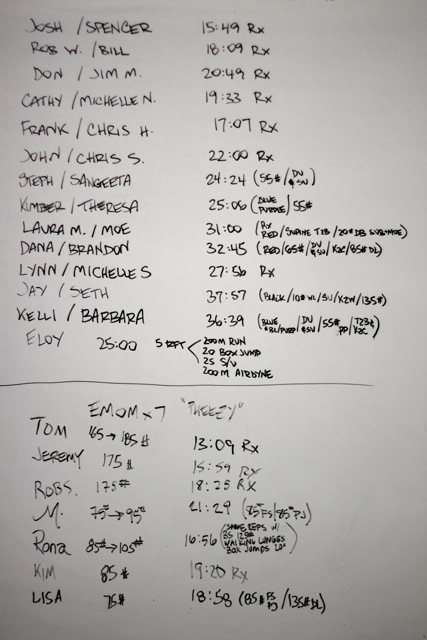 JOSH / SPENCER 15:49 Rx
ROB W. / BILL 18:09 Rx
DON / JIM M. 20:49 Rx
CATHY / MICHELLE N. 19:33 Rx
FRANK / CHRIS H. 17:07 Rx
JOHN / CHRIS S. 22:00 Rx
STEPH / SANGEETA 24:24 (55# / DU & SU)
KIMBER / THERESA 25:06 (BLUE PURPLE / 55#
LAURA M. / MOE 31:00 (Rx RED / SUPINE T2B / 20# DB SUB-MOE)
DANA / BRANDON 32:45 (RED / 65# / DU & SU / K2C / 85# DL)
LYNN / MICHELLE S 27:56 Rx
JAY / SETH 37:57 (BLACK / 10# WL / SU / K2W / 135#)
KELLI / BARBARA 36:39 (BLUE + BL/PURP / DU & SU / 55# PP / T23& K2C)
ELOY 25:00 5 RFT 200M RUN
20 BOX JUMP
25 S/U
200 M AIRDYNE
EMOM x 7 "PHEEZY"
TOM 165 → 185 # 13:09 Rx
JEREMY 175 # 15:59 Rx
ROBS. 175# 18:25 Rx
M. 75# → 95# 21:29 (85# FS / 85# PJ)
Rona 85# → 105# 16:56 (SAME REPS W/ BS 125# WALKING LUNGES BOX JUMPS 20"
KIM 85# 19:20 Rx
LISA 75# 18:58 (85# FS PJ / 135# DL)